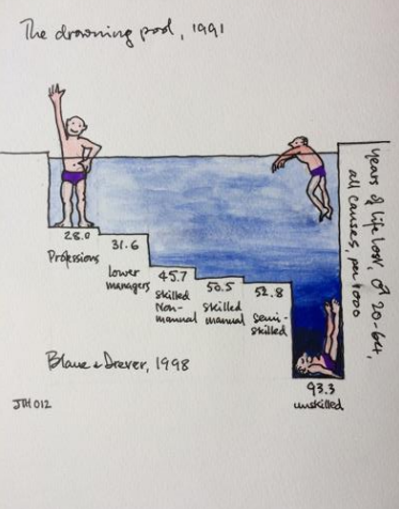 The drowning pool, 1991
28.0
Professions
31.6
Lower
managers
45.7
Skilled
Non-
manual
50.5
Skilled
manual
52.8
Semi-
skilled
93.3
unskilled
years of life lost, ♂ 20-64,
all causes, per 1000
Blane & Drever, 1998
JTH 012